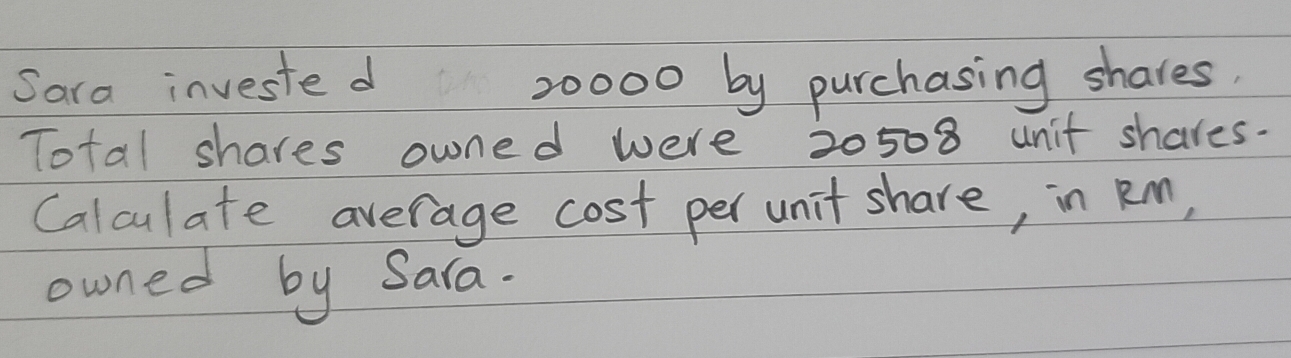 Sara invested 20000 by purchasing shares.
Total shares owned were 20508 unit shares.
Calculate average cost per unit share, in RM,
owned by Sara.